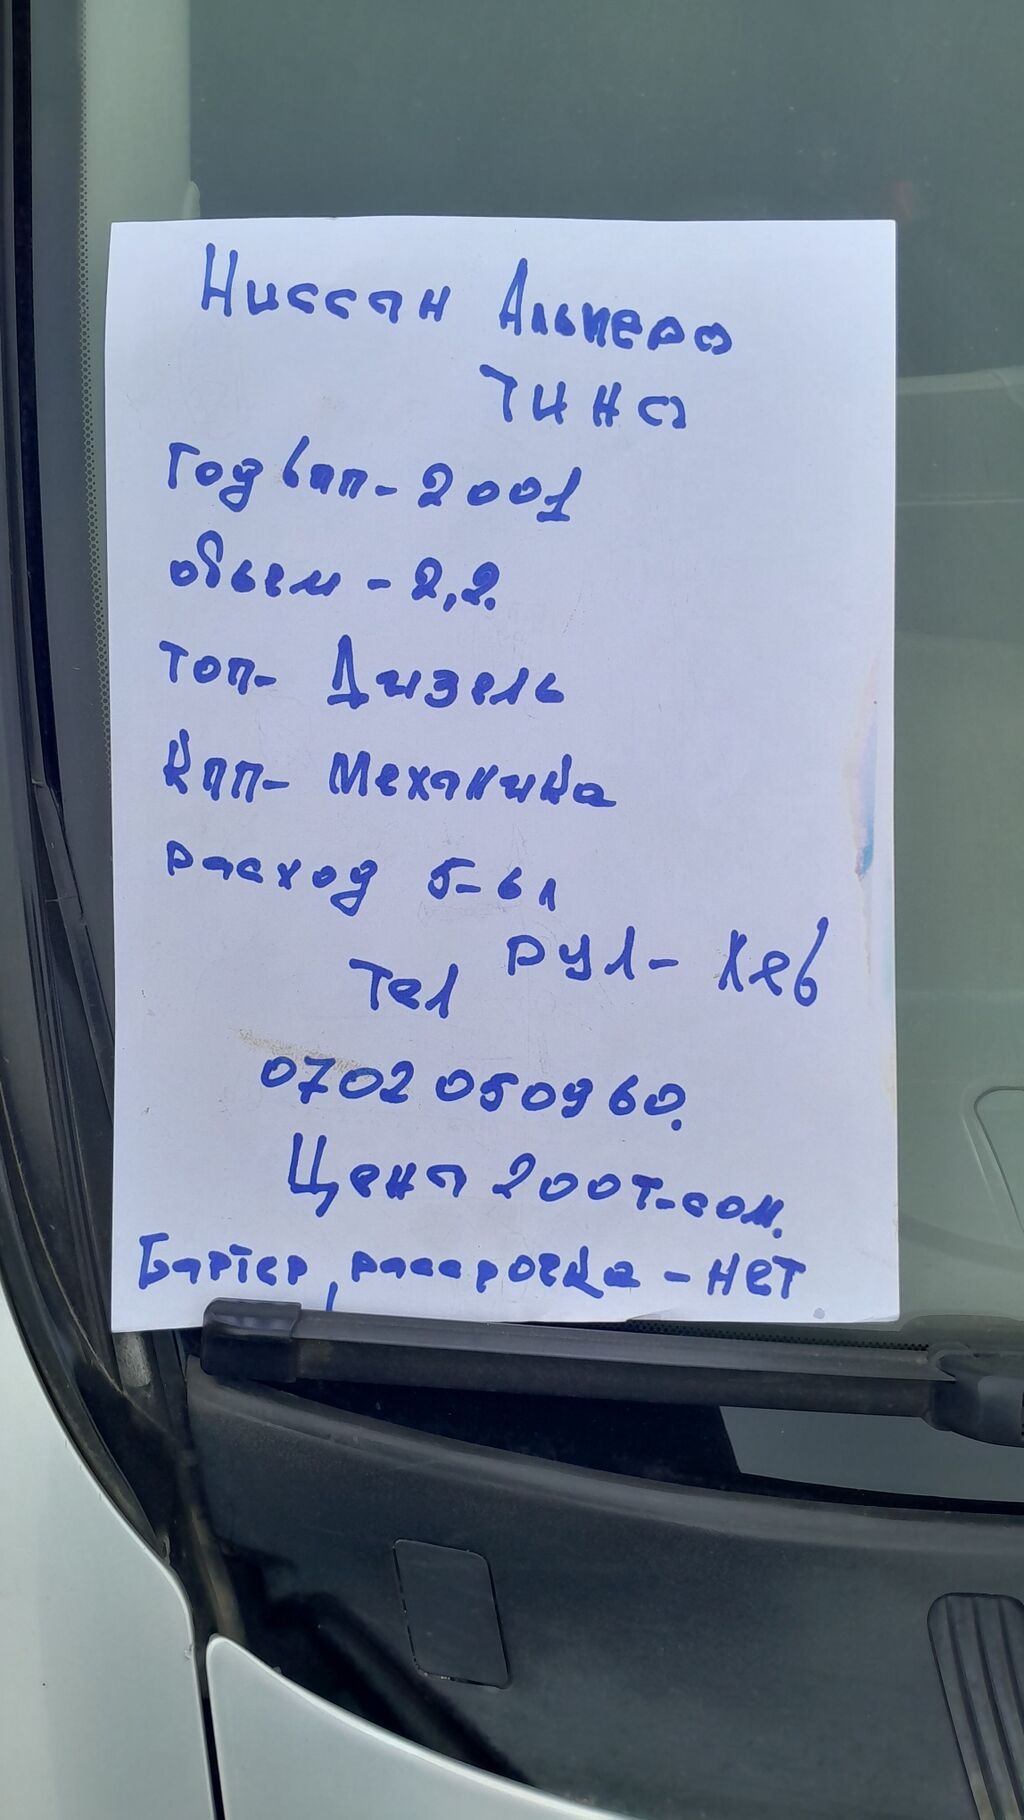 Ниссан Альмера
Тина
Год вып- 2001
объем - 2,2.
Топ- Дизель
Кпп- Механика
расход 5-6 л
рул- лев
Тел
0702 050960.
Цена 200т-сом.
Бартер, рассрочка - нет